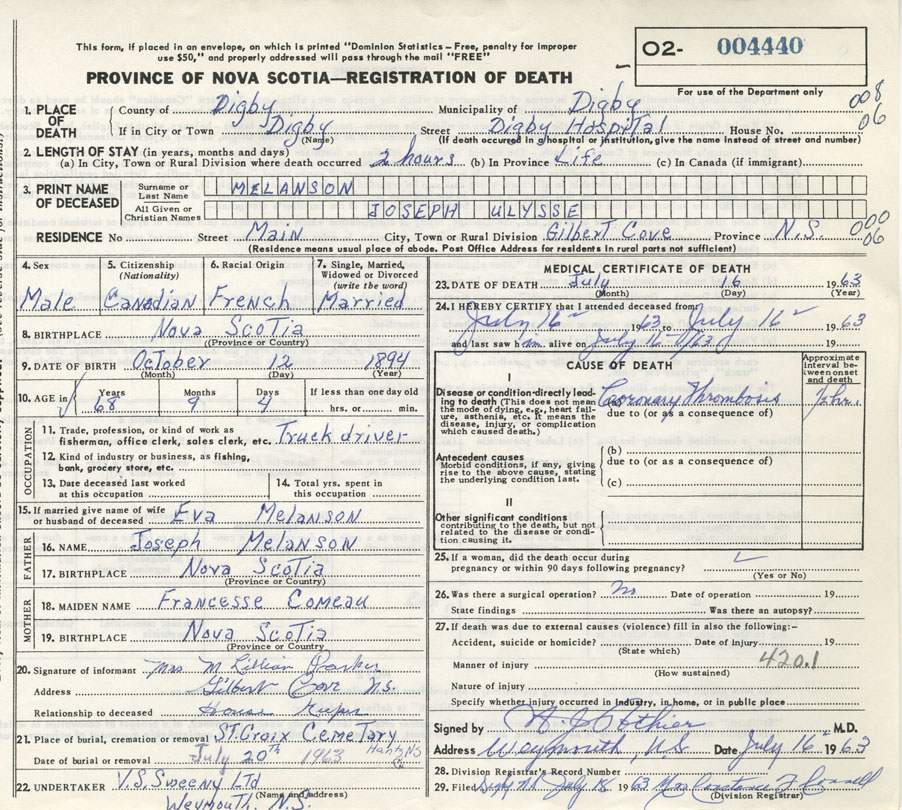 This form, if placed in an envelope, on which is printed "Dominion Statistics – Free, penalty for improper
use $50," and properly addressed will pass through the mail "FREE"
O2- 004440
PROVINCE OF NOVA SCOTIA—REGISTRATION OF DEATH
For use of the Department only
008
06
1. PLACE OF DEATH
County of Digby Municipality of Digby
If in City or Town Digby Street Digby Hospital House No.
(Name) (If death occurred in a hospital or institution, give the name instead of street and number)
2. LENGTH OF STAY (in years, months and days)
(a) In City, Town or Rural Division where death occurred 2 hours (b) In Province Life (c) In Canada (if immigrant)
3. PRINT NAME OF DECEASED
Surname or Last Name MELANSON
All Given or Christian Names JOSEPH ULYSSE
000
06
RESIDENCE No Street Main City, Town or Rural Division Gilbert Cove Province N.S.
(Residence means usual place of abode. Post Office Address for residents in rural parts not sufficient)
4. Sex Male
5. Citizenship (Nationality) Canadian
6. Racial Origin French
7. Single, Married, Widowed or Divorced (write the word) Married
8. BIRTHPLACE Nova Scotia
(Province or Country)
9. DATE OF BIRTH October 12 1894
(Month) (Day) (Year)
10. AGE in Years Months Days If less than one day old
68 9 4 hrs. or min.
OCCUPATION
11. Trade, profession, or kind of work as
fisherman, office clerk, sales clerk, etc. Truck driver
12. Kind of industry or business, as fishing,
bank, grocery store, etc.
13. Date deceased last worked
at this occupation
14. Total yrs. spent in
this occupation
15. If married give name of wife
or husband of deceased Eva Melanson
FATHER
16. NAME Joseph Melanson
17. BIRTHPLACE Nova Scotia
(Province or Country)
MOTHER
18. MAIDEN NAME Francesse Comeau
19. BIRTHPLACE Nova Scotia
(Province or Country)
20. Signature of informant Mrs M Lillian
Address Gilbert Cove N.S.
Relationship to deceased House
21. Place of burial, cremation or removal ST. Croix Cemetary
Date of burial or removal July 20th 1963
22. UNDERTAKER V.S. Sweeny Ltd
(Name and address)
Weymouth, N.S.
MEDICAL CERTIFICATE OF DEATH
23. DATE OF DEATH July 16 1963
(Month) (Day) (Year)
24. I HEREBY CERTIFY that I attended deceased from
July 16 1963 to July 16 1963
and last saw him alive on July 16 19
CAUSE OF DEATH
Approximate interval between onset and death
I
Disease or condition directly leading to death (This does not mean the mode of dying, e.g., heart failure, asthenia, etc. It means the disease, injury, or complication which caused death.)
Coronary Thrombosis
due to (or as a consequence of)
Antecedent causes
Morbid conditions, if any, giving rise to the above cause, stating the underlying condition last.
(b)
due to (or as a consequence of)
(c)
II
Other significant conditions
contributing to the death, but not related to the disease or condition causing it.
25. If a woman, did the death occur during
pregnancy or within 90 days following pregnancy?
(Yes or No)
26. Was there a surgical operation? no Date of operation 19
State findings Was there an autopsy?
27. If death was due to external causes (violence) fill in also the following:-
Accident, suicide or homicide? Date of Injury 19
(State which)
Manner of injury 420.1
(How sustained)
Nature of injury
Specify whether injury occurred in industry, in home, or in public place
Signed by M.D.
Address Weymouth, N.S. Date July 16 1963
28. Division Registrar's Record Number
29. Filed Digby NS July 18 1963 Mrs
(Division Registrar)